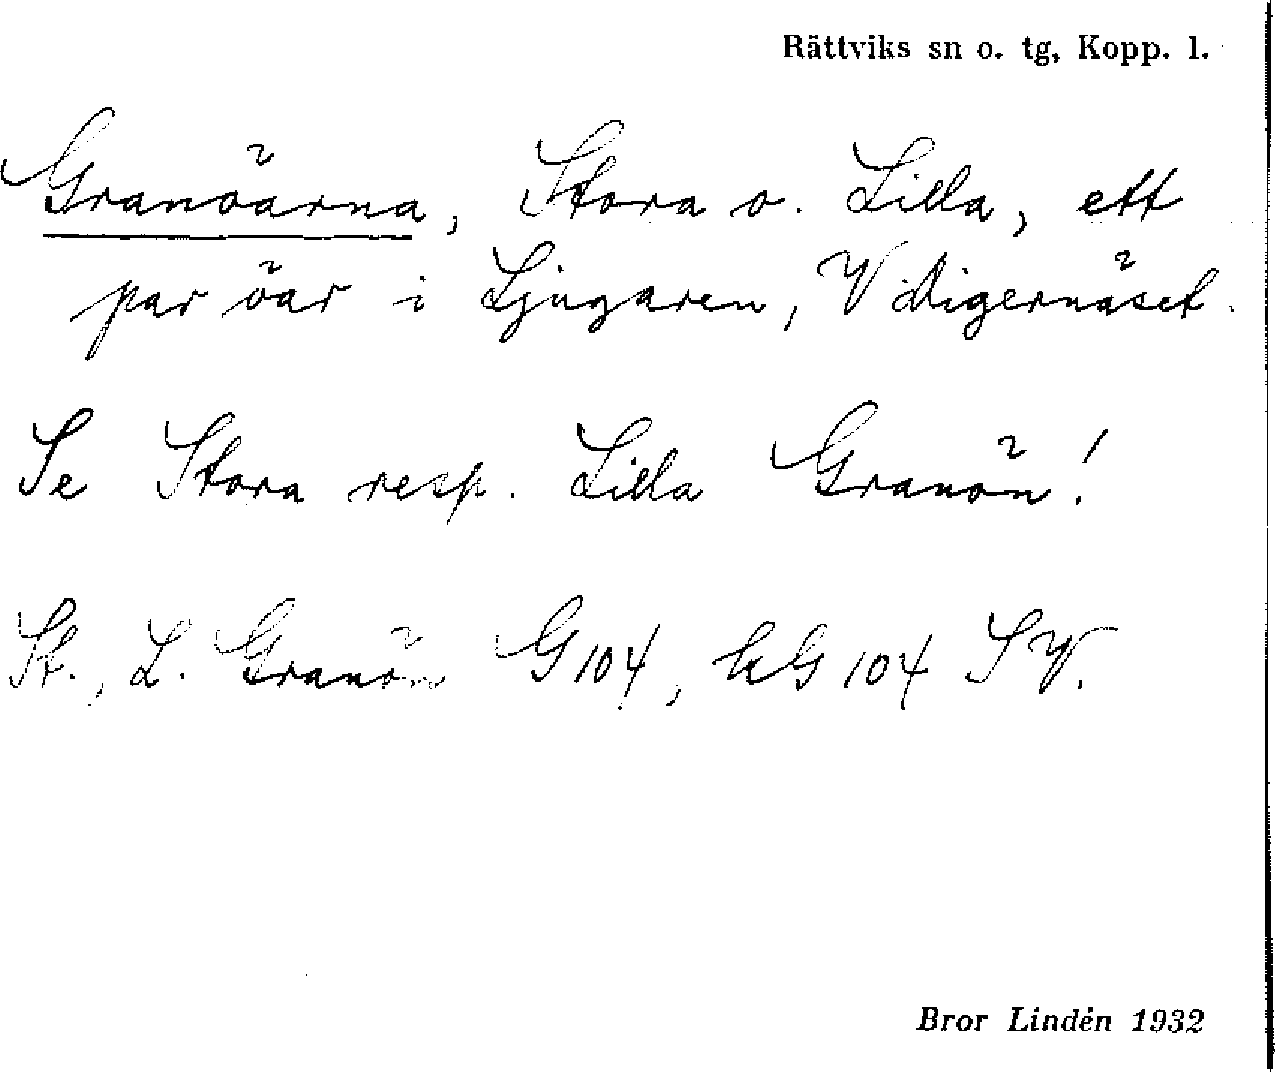 Rättviks sn o. tg, Kopp. l.
Granöarna, Stora o. Lilla, ett
par öar i Ljugaren, V Digernäset.
Se Stora resp. Lilla Granön!
St., L. Granön G 104, hG 104 SV.
Bror Lindén 1932